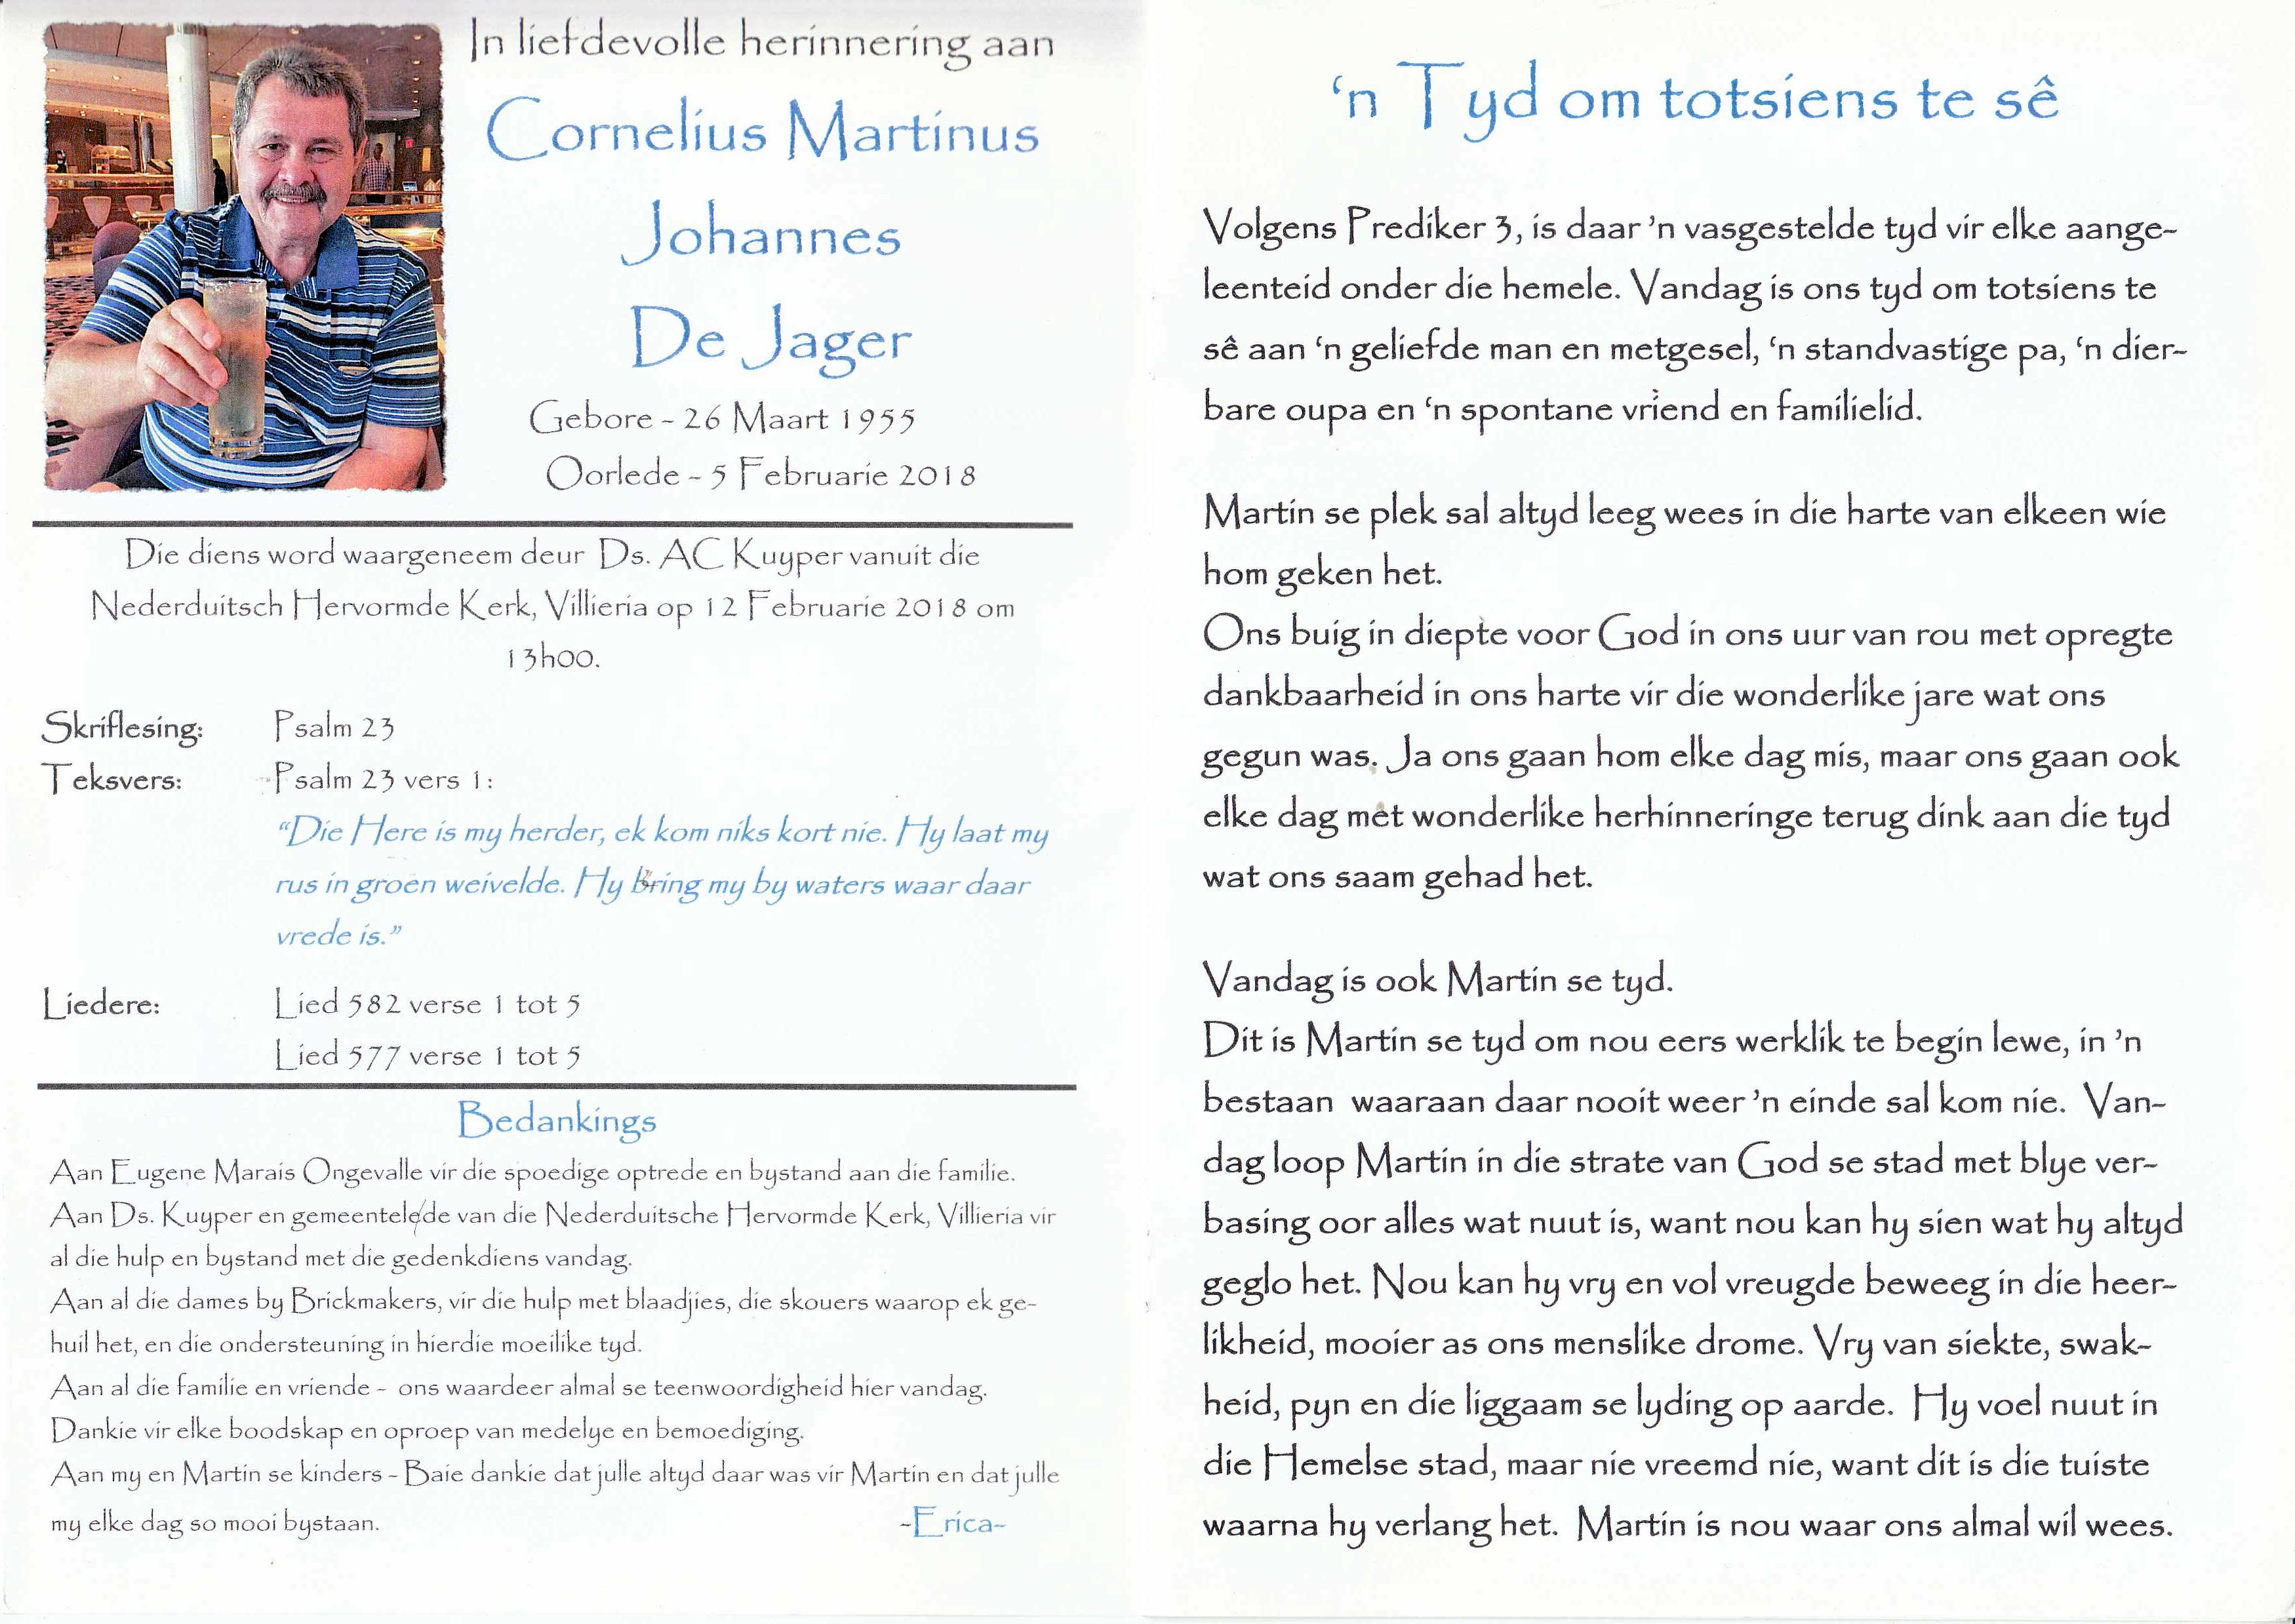 In liefdevolle herinnering aan
Cornelius Martinus
Johannes
De Jager
Gebore - 26 Maart 1955
Oorlede - 5 Februarie 2018
Die diens word waargeneem deur Ds. AC Kuyper vanuit die
Nederduitsch Hervormde Kerk, Villieria op 12 Februarie 2018 om
13h00.
Skriflesing: Psalm 23
Teksvers: Psalm 23 vers 1:
“Die Here is my herder, ek kom niks kort nie. Hy laat my
rus in groen weivelde. Hy bring my by waters waar daar
vrede is.”
Liedere: Lied 582 verse 1 tot 5
Lied 577 verse 1 tot 5
Bedankings
Aan Eugene Marais Ongevalle vir die spoedige optrede en bystand aan die familie.
Aan Ds. Kuyper en gemeentelede van die Nederduitsche Hervormde Kerk, Villieria vir
al die hulp en bystand met die gedenkdiens vandag.
Aan al die dames by Brickmakers, vir die hulp met blaadjies, die skouers waarop ek ge-
huil het, en die ondersteuning in hierdie moeilike tyd.
Aan al die familie en vriende - ons waardeer almal se teenwoordigheid hier vandag.
Dankie vir elke boodskap en oproep van medelye en bemoediging.
Aan my en Martin se kinders - Baie dankie dat julle altyd daar was vir Martin en dat julle
my elke dag so mooi bystaan. -Erica-
‘n Tyd om totsiens te sê
Volgens Prediker 3, is daar ’n vasgestelde tyd vir elke aange-
leenteid onder die hemele. Vandag is ons tyd om totsiens te
sê aan ‘n geliefde man en metgesel, ‘n standvastige pa, ‘n dier-
bare oupa en ‘n spontane vriend en familielid.
Martin se plek sal altyd leeg wees in die harte van elkeen wie
hom geken het.
Ons buig in diepte voor God in ons uur van rou met opregte
dankbaarheid in ons harte vir die wonderlike jare wat ons
gegun was. Ja ons gaan hom elke dag mis, maar ons gaan ook
elke dag met wonderlike herhinneringe terug dink aan die tyd
wat ons saam gehad het.
Vandag is ook Martin se tyd.
Dit is Martin se tyd om nou eers werklik te begin lewe, in ’n
bestaan waaraan daar nooit weer ’n einde sal kom nie. Van-
dag loop Martin in die strate van God se stad met blye ver-
basing oor alles wat nuut is, want nou kan hy sien wat hy altyd
geglo het. Nou kan hy vry en vol vreugde beweeg in die heer-
likheid, mooier as ons menslike drome. Vry van siekte, swak-
heid, pyn en die liggaam se lyding op aarde. Hy voel nuut in
die Hemelse stad, maar nie vreemd nie, want dit is die tuiste
waarna hy verlang het. Martin is nou waar ons almal wil wees.